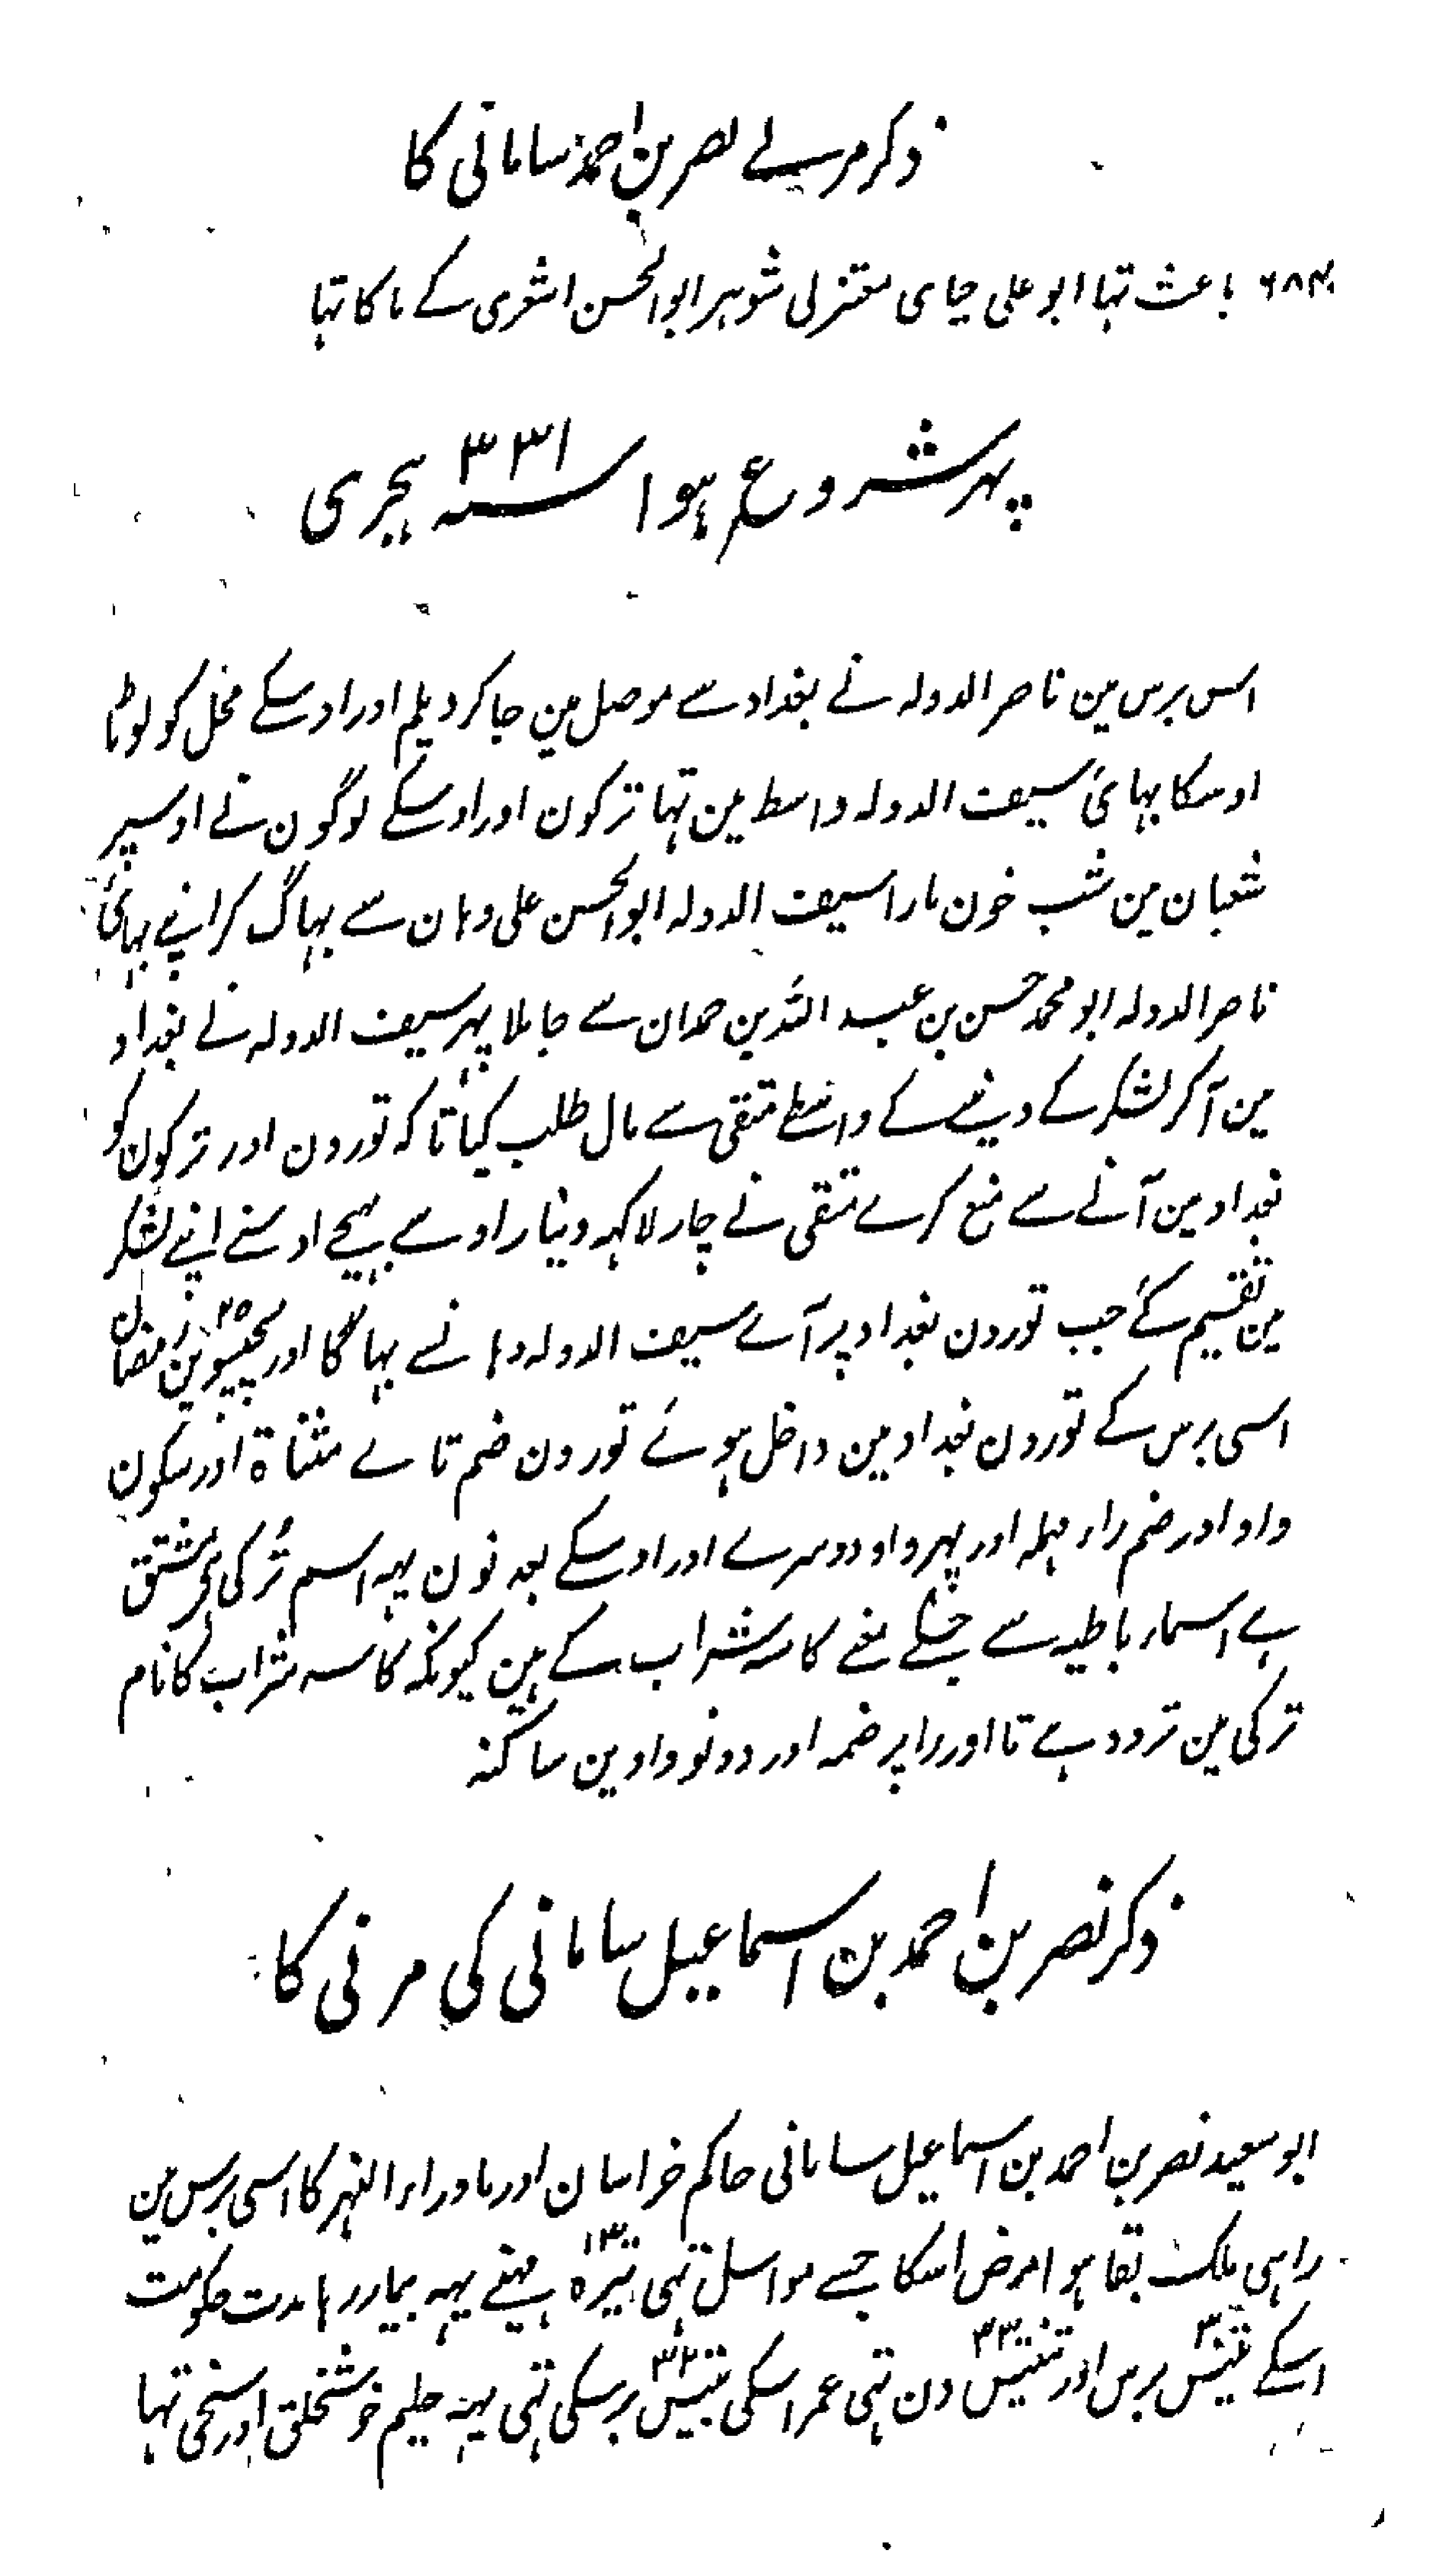 ذکر مرنے نصر بن احمد سامانی کا
۶۸۴ باعث تہا ابو علی جبای معتزلی شوہر ابو الحسن اشعری کے ما کا تہا
پہر شروع ہوا سنہ ۳۳۱ ہجری
اس برس مین ناصر الدولہ نے بغداد سے موصل مین جاکر دیلم اور اوسکے محل کو لوٹا
اوسکا بہائ سیف الدولہ واسط مین تہا ترکون اور اوسکے لوگون نے اوسپر
شعبان مین شب خون مارا سیف الدولہ ابو الحسن علی وہان سے بہاگ کر اپنے بہائ
ناصر الدولہ ابو محمد حسن بن عبد اللہ بن حمدان سے جا ملا پہر سیف الدولہ نے بغداد
مین آکر لشکر کے دینے کے واسطے متقی سے مال طلب کیا تاکہ تورون اور ترکون کو
بغداد مین آنے سے منع کرے متقی نے چار لاکہہ دینار اوسے بہیجے اوسنے اپنے لشکر
مین تقسیم کئے جب تورون بغداد پر آے سیف الدولہ وہانسے بہاگا اور پچیسوین ۲۵ رمضان
اسی برس کے تورون بغداد مین داخل ہوئے تورون ضم تاے مثناۃ اور سکون
واو اور ضم راء مہملہ اور پہر واو دوسرے اور اوسکے بعد نون یہہ اسم ترکی ہی مشتق
ہے اسماء باطیہ سے جسکے معنے کاسہ شراب کے ہین کیونکہ کاسہ شراب کا نام
ترکی مین ترود ہے تا اور را پر ضمہ اور دونو واوین ساکنہ
ذکر نصر بن احمد بن اسماعیل سامانی کی مرنی کا
ابو سعید نصر بن احمد بن اسماعیل سامانی حاکم خراسان اور ماوراء النہر کا اسی برس مین
راہی ملک بقا ہوا مرض اسکا جسے مواسل تہی تیرہ ۱۳ مہینے یہہ بیمار رہا مدت حکومت
اسکے تیس ۳۰ برس اور تینتیس ۳۳ دن تہی عمر اسکی بتیس ۳۲ برسکی تہی یہہ حلیم خوشخلق اور سخی تہا